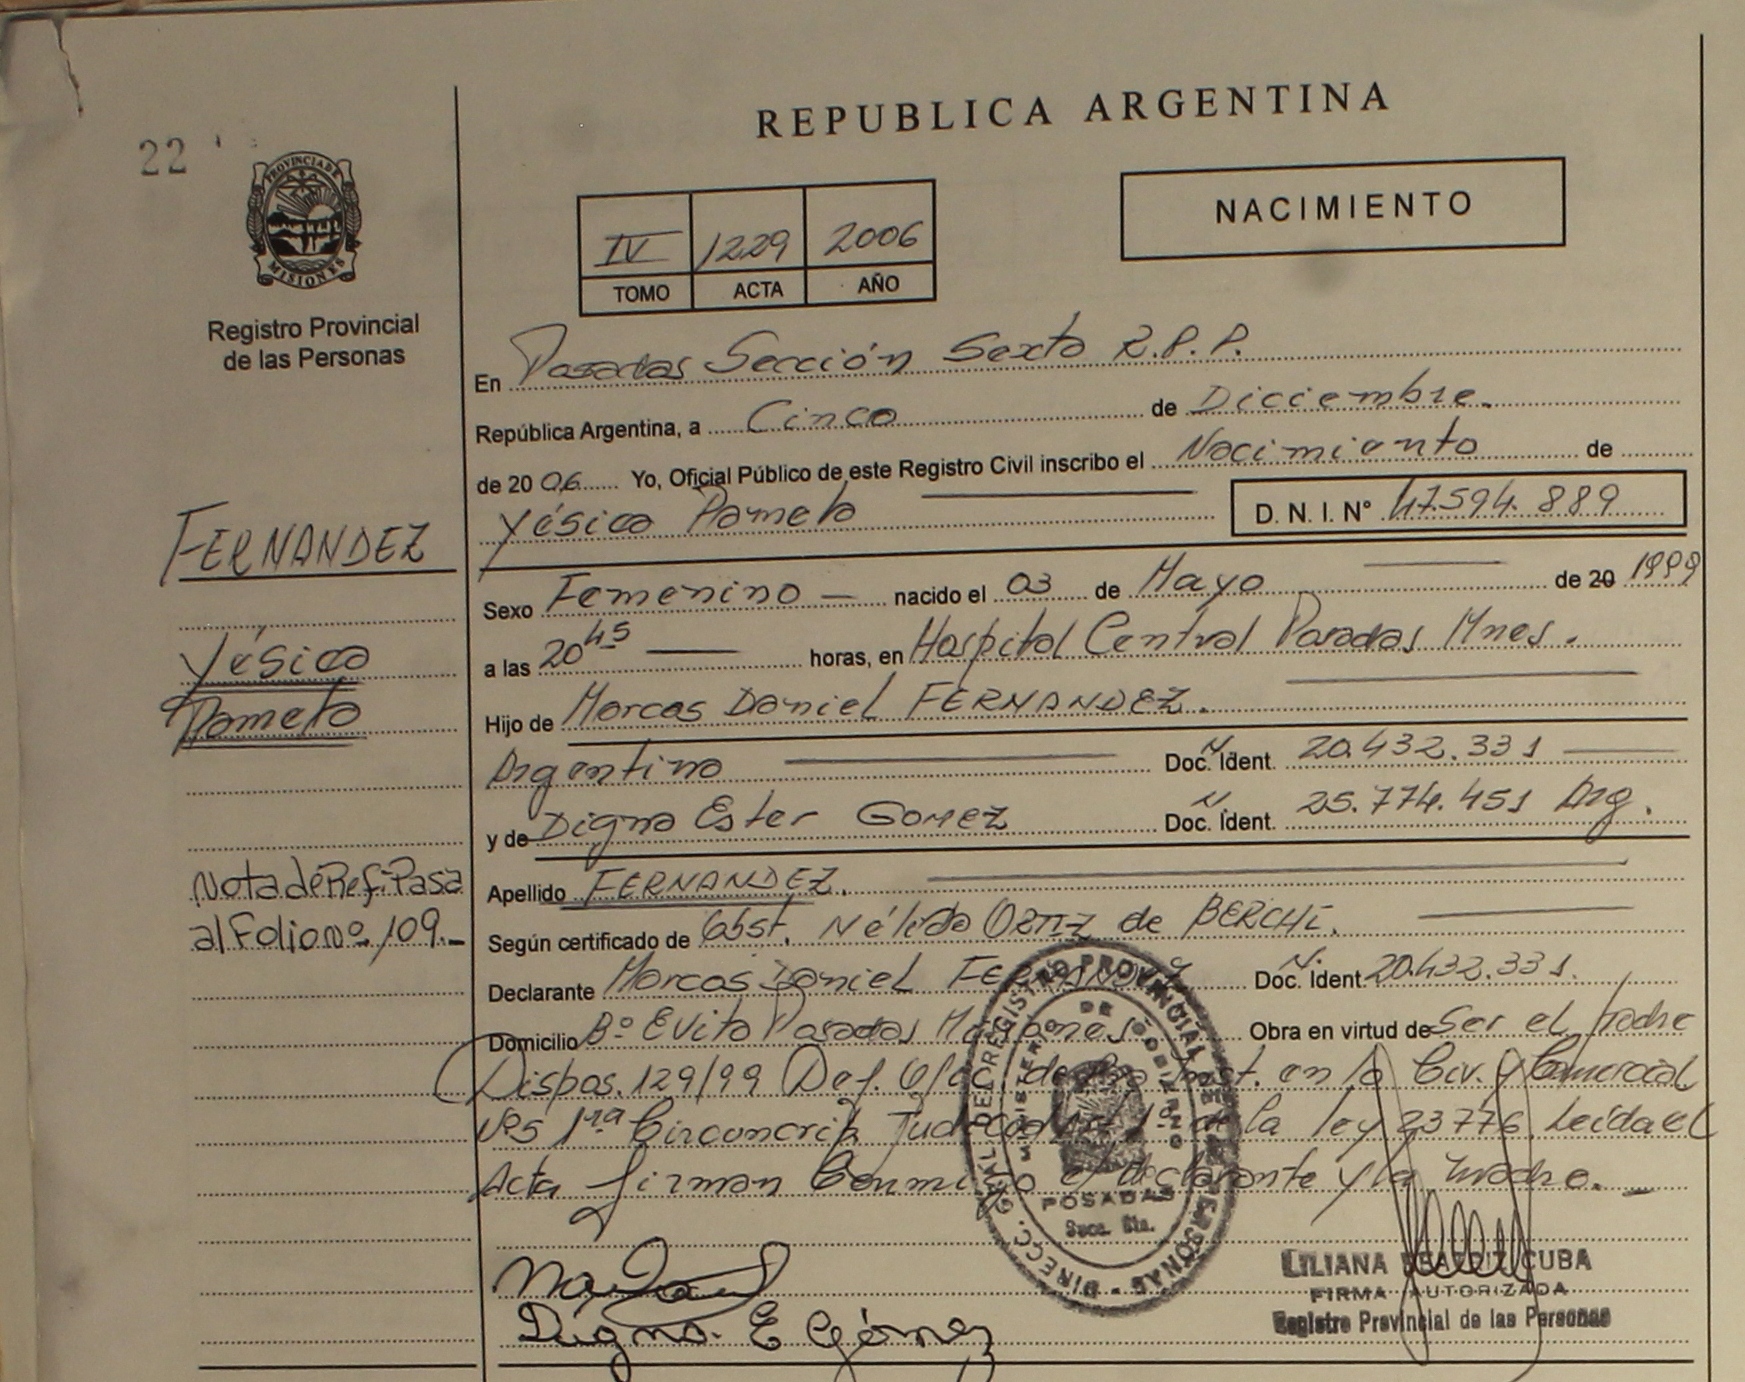 REPUBLICA ARGENTINA
22
PROVINCIA DE
MISIONES
Registro Provincial
de las Personas
NACIMIENTO
IV 1229 2006
TOMO ACTA AÑO
En Posadas Sección Sexta R.P.P.
República Argentina, a Cinco de Diciembre.
de 2006 Yo, Oficial Público de este Registro Civil inscribo el Nacimiento de
Yésica Pamela D. N. I. N° 47.594.889
FERNANDEZ
Yésica
Pamela
Sexo Femenino — nacido el 03 de Mayo de 20 1999
a las 20 45 horas, en Hospital Central Posadas Mnes.
Hijo de Marcos Daniel FERNANDEZ.
Argentino Doc. Ident. 20.432.331
y de Digna Ester GOMEZ Doc. Ident. 25.774.451 Arg.
Nota de Ref: Pasa
al Folio nº 109.-
Apellido FERNANDEZ.
Según certificado de Obst. Nélida ORTIZ de BERCHI.
Declarante Marcos Daniel FERNANDEZ Doc. Ident. 20.432.331.
Domicilio Bº Evita Posadas Misiones Obra en virtud de Ser el padre
Dispos. 129/99 Def. Ofic. de Inst. en lo Civ. y Comercial
Nº5 1ra Circuncrip. Judicial 1º de la ley 23776. Leída el
Acta firman Conmigo el declarante y la madre. —
DIRECC. GRAL DEL REGISTRO PROVINCIAL DE LAS PERSONAS
MINISTERIO DE GOBIERNO
POSADAS
Secc. 6ta.
Digna. E Gómez
LILIANA BEATRIZ CUBA
FIRMA AUTORIZADA
Registro Provincial de las Personas